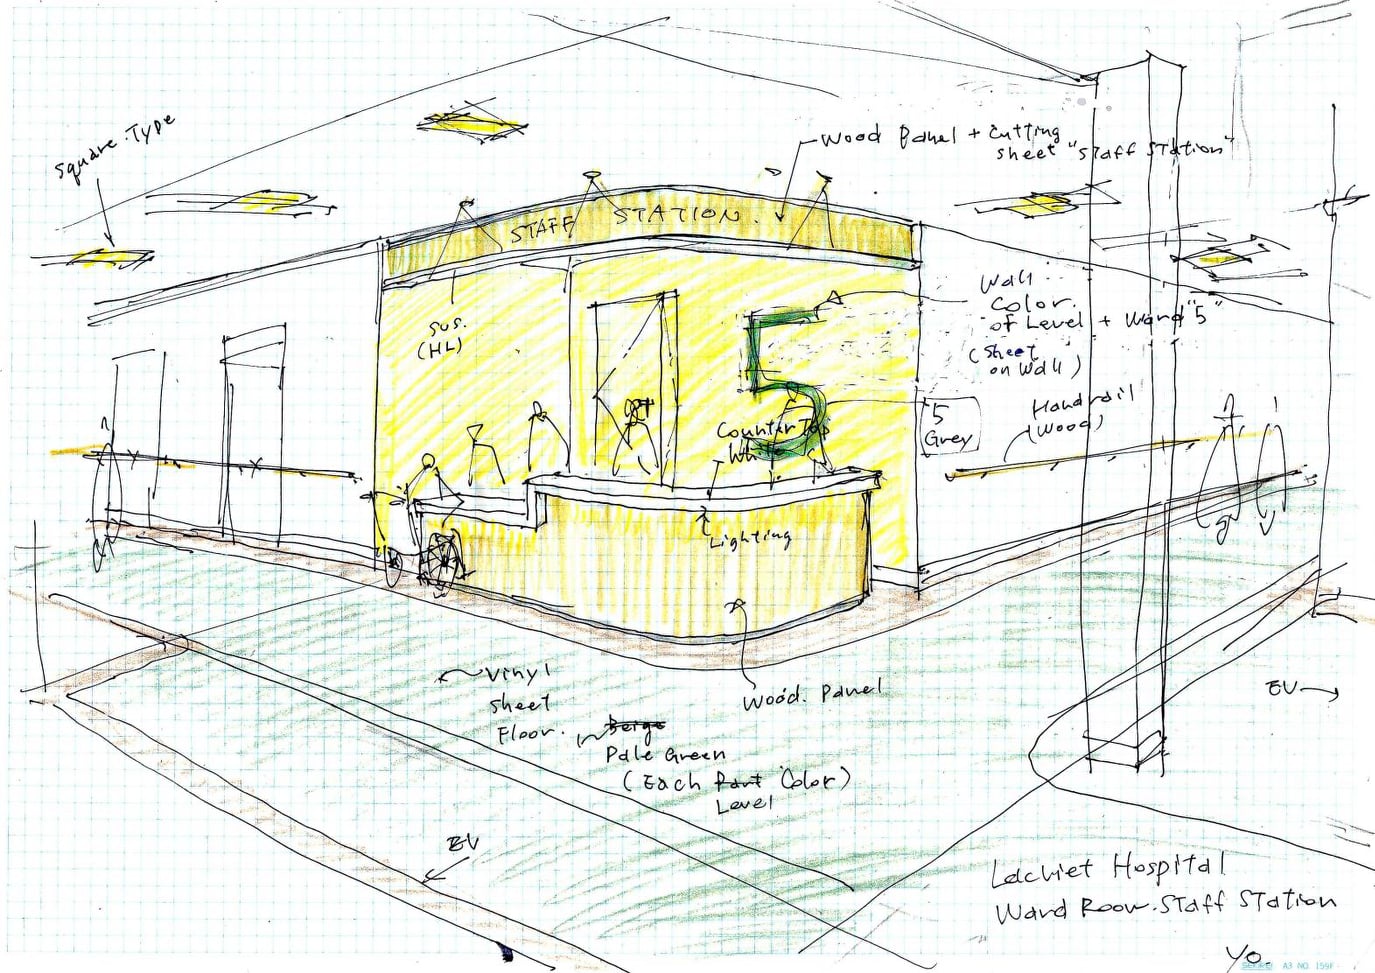 Square.Type
Wood Panel + Cutting
sheet "Staff Station"
STAFF STATION.
Wall
Color.
of Level + Ward "5"
(Sheet
on Wall)
SUS.
(HL)
5
Grey
Handrail
(Wood)
Counter Top
Wh
Lighting
Vinyl
Sheet
Floor.
Beige
Pale Green
(Each Part Color)
Level
Wood. Panel
EV
EV
Lachiet Hospital
Ward Room. Staff Station
Yo.
SEKIREI A3 NO. 159F